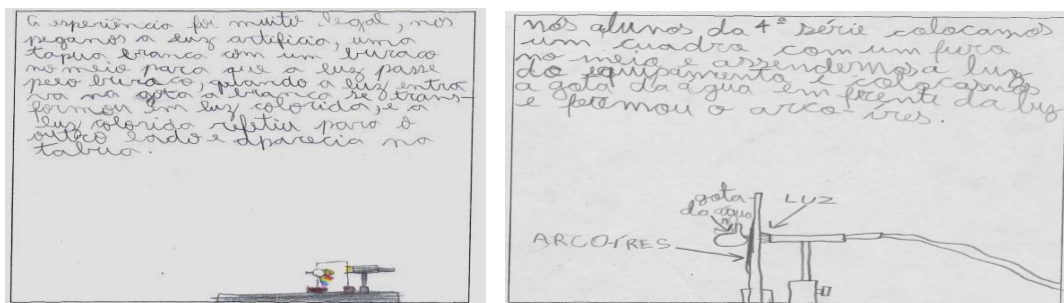 A esperiência foi muito legal, nós
pegamos a luz artificio, uma
tapua branca com um buraco
no meio para que a luz passe
pelo buraco, quando a luz entra
va na gota a branca se trans-
formou em luz colorida, e a
luz colorida refetiu para o
outro lado e aparecia na
tabua.
nós alunos da 4ª série colocamos
um cuadro com um furo
no meio e assendemos a luz
do equipamento e colocasmos
a gota da água em frente da luz
e formou o arco-íres.
gota
da água
LUZ
ARCO-ÍRES